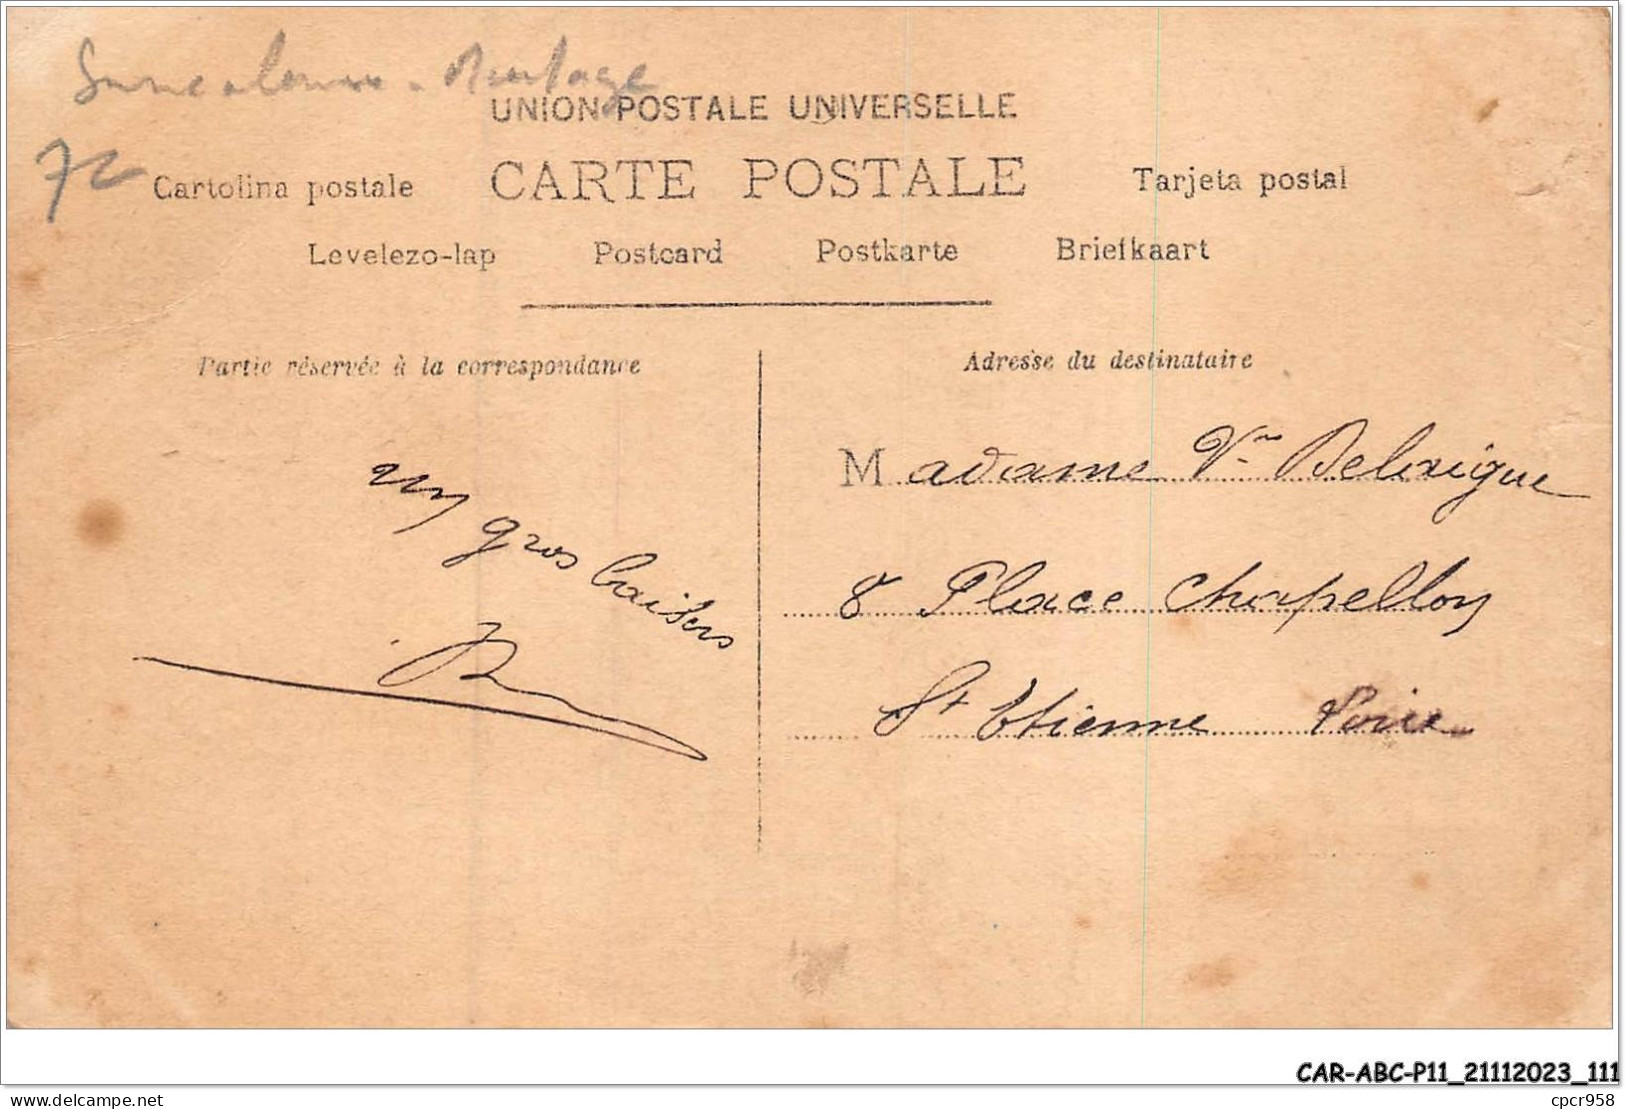 Montage
72
UNION POSTALE UNIVERSELLE
CARTE POSTALE
Cartolina postale
Tarjeta postal
Levelezo-lap Postcard Postkarte Briefkaart
Partie réservée à la correspondance
Adresse du destinataire
un gros baisers
Madame Vve Delaigue
8 Place Chapellon
St Etienne Loire
CAR-ABC-P11_21112023_111
cpcr958